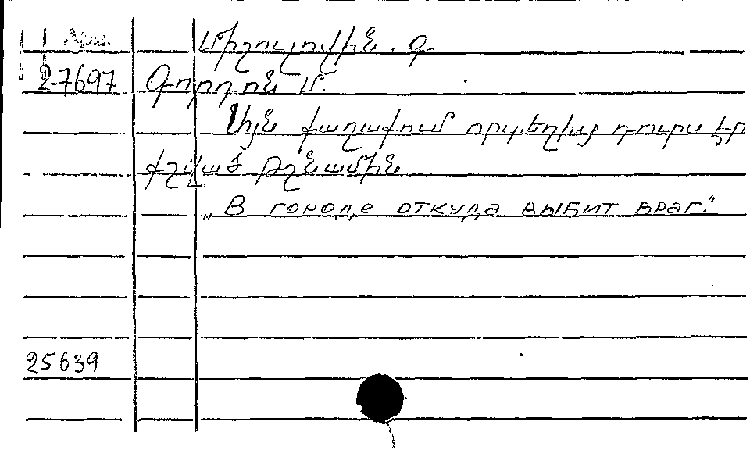 Միշուլովին. Գ.
2-7697 Գորդոն Մ.
Այն քաղաքում որտեղից դուրս էր
քշված թշնամին
„В городе откуда выбит враг."
25639